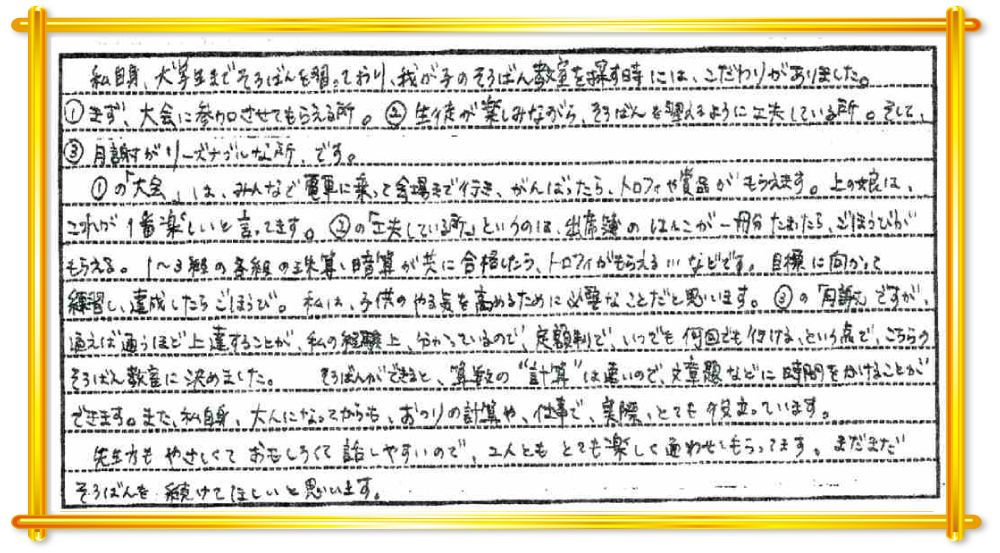 私自身、大学生までそろばんを習っており、我が子のそろばん教室を探す時には、こだわりがありました。
①まず、大会に参加させてもらえる所。②生徒が楽しみながら、そろばんを習えるように工夫している所。そして、
③月謝がリーズナブルな所、です。
①の「大会」は、みんなで電車に乗って会場まで行き、がんばったら、トロフィや賞品がもらえます。上の娘は、
これが1番楽しいと言ってます。②の「工夫している所」というのは、出席簿のはんこが一冊分たまったら、ごほうびが
もらえる。1〜3級の各級の珠算・暗算が共に合格したら、トロフィがもらえる…などです。目標に向かって
練習し、達成したらごほうび。私は、子供のやる気を高めるために必要なことだと思います。③の「月謝」ですが、
通えば通うほど上達することが、私の経験上、分かっているので、定額制で、いつでも何回でも行ける、という点で、こちらの
そろばん教室に決めました。 そろばんができると、算数の"計算"は速いので、文章題などに時間をかけることが
できます。また、私自身、大人になってからも、おつりの計算や、仕事で、実際、とても役立っています。
先生方もやさしくておもしろくて話しやすいので、2人ともとても楽しく通わせてもらってます。まだまだ
そろばんを続けてほしいと思います。